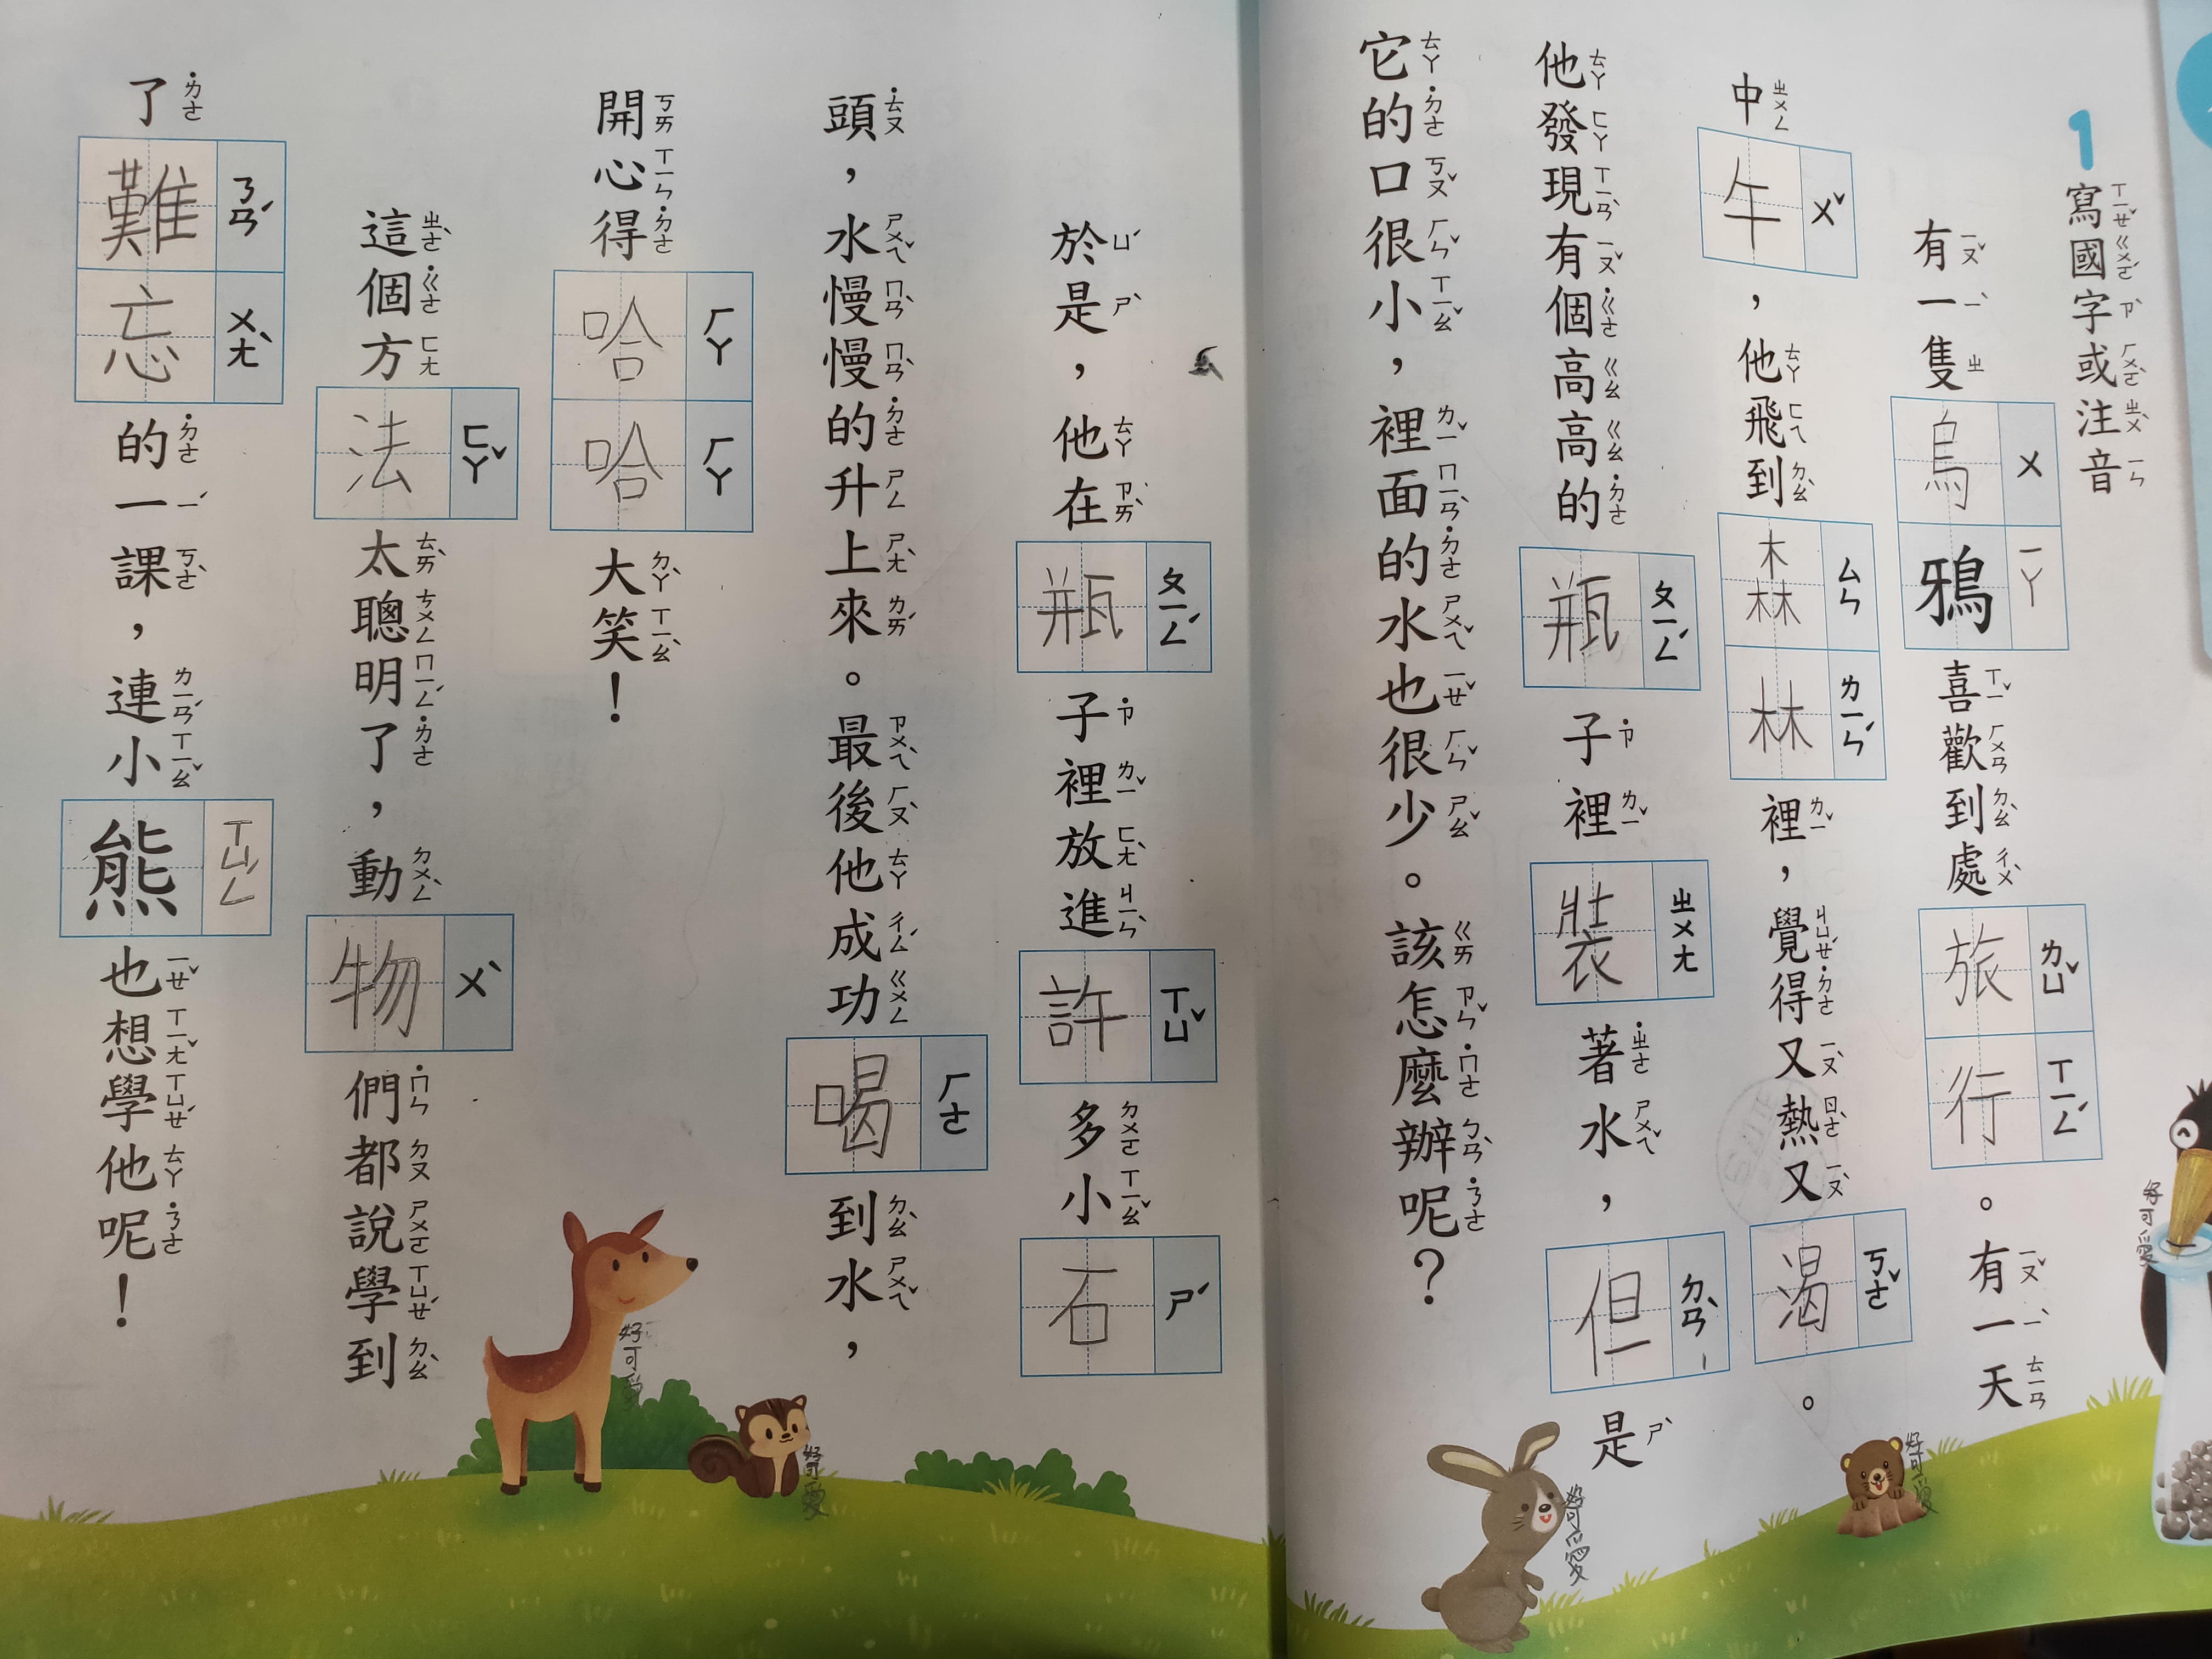 1
寫國字或注音
有一隻烏鴉喜歡到處旅行。有一天
中午，他飛到森林裡，覺得又熱又渴。
他發現有個高高的瓶子裡裝著水，但是
它的口很小，裡面的水也很少。該怎麼辦呢？
於是，他在瓶子裡放進許多小石
頭，水慢慢的升上來。最後他成功喝到水，
開心得哈哈大笑！
這個方法太聰明了，動物們都說學到
了難忘的一課，連小熊也想學他呢！
好可愛
好可愛
好可愛
好可愛
好可愛